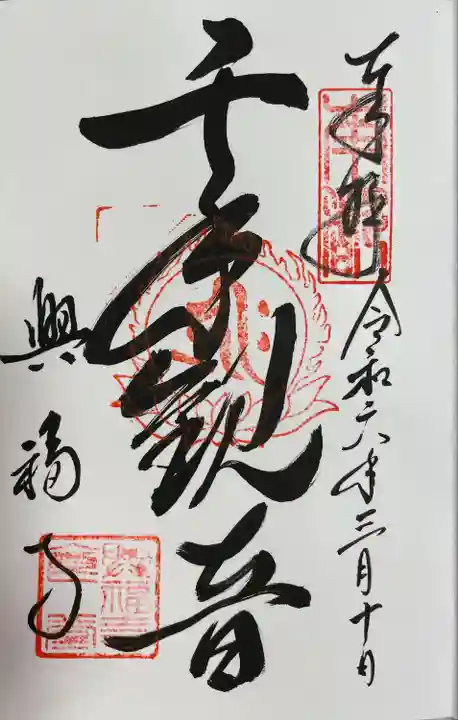 奉拝
令和六年三月十日
千手観音
興福寺